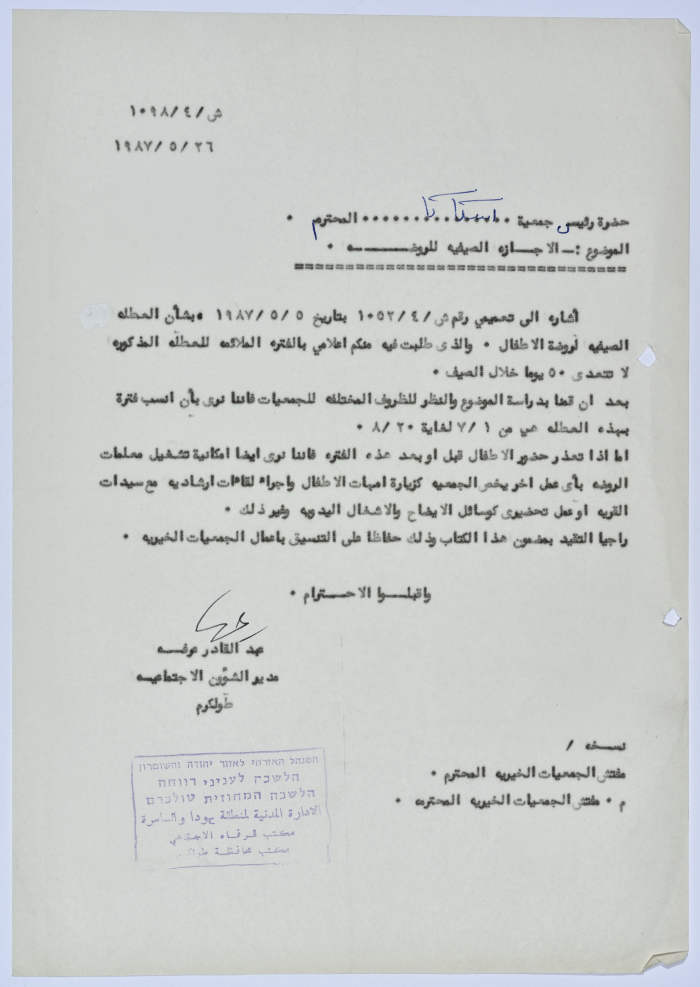 ش/٤/١٠٩٨
١٩٨٧/٥/٢٦
حضرة رئيس جمعية ................ المحترم .
الموضوع :ـ الاجـازه الصيفيه للروضـــــه .
==============================
أشاره الى تعميمي رقم ش/٤/١٠٥٢ بتاريخ ١٩٨٧/٥/٥ . بشأن العطله
الصيفيه لروضة الاطفال . والذى طلبت فيه منكم اعلامي بالفتره الملائمه للعطله المذكوره
لا تتعدى ٥٠ يوما خلال الصيف .
بعد ان قمنا بدراسة الموضوع والنظر للظروف المختلفه للجمعيات فاننا نرى بأن انسب فترة
لهذه العطله هي من ٧/١ لغاية ٨/٢٠ .
اما اذا تعذر حضور الاطفال قبل او بعد هذه الفتره فاننا نرى ايضا امكانية تشغيل معلمات
الروضه بأى عمل اخر يخص الجمعيه كزيارة امهات الاطفال واجراء لقاءات ارشاديه مع سيدات
القريه او عمل تحضيرى كوسائل الايضاح والاشغال اليدويه وغير ذلك .
راجيا التقيد بمضمون هذا الكتاب وذلك حفاظا على التنسيق باعمال الجمعيات الخيريه .
واقبلـوا الاحـترام .
عبد القادر عرفـــه
مدير الشؤون الاجتماعيـه
طولكرم
نسخه /
مفتش الجمعيات الخيريه المحترم .
م . مفتش الجمعيات الخيريه المحترمه .
המנהל האזרחי לאזור יהודה והשומרון
הלשכה לעניני רווחה
הלשכה המחוזית טולכרם
الادارة المدنية لمنطقة يهودا والسامرة
مكتب الرفاه الاجتماعي
مكتب محافظة طولكرم